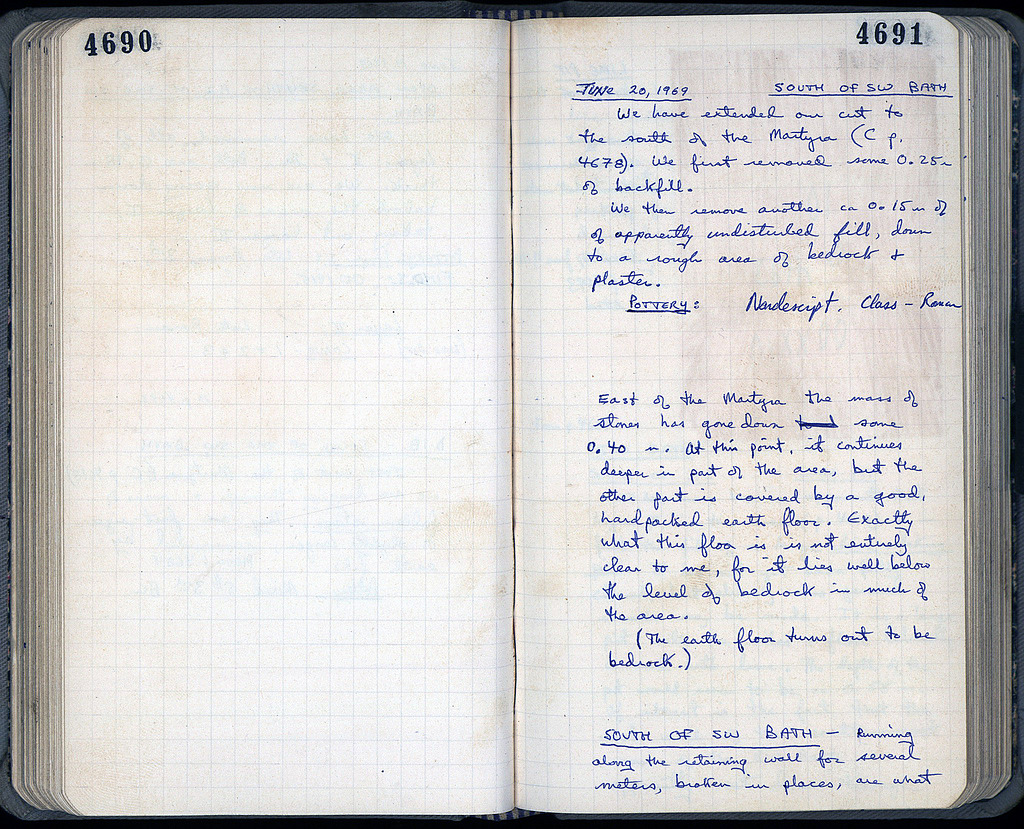 4690
4691
JUNE 20, 1969 SOUTH OF SW BATH
We have extended our cut to
the south of the Martyra (C p.
4678). We first removed some 0.25m
of backfill.
We then remove another ca 0.15 m of
of apparently undisturbed fill, down
to a rough area of bedrock &
plaster.
POTTERY: Nondescript. Class - Roman
East of the Martyra the mass of
stones has gone down some
0.40 m. At this point, it continues
deeper in part of the area, but the
other part is covered by a good,
hardpacked earth floor. Exactly
what this floor is is not entirely
clear to me, for it lies well below
the level of bedrock in much of
the area.
(The earth floor turns out to be
bedrock.)
SOUTH OF SW BATH - Running
along the retaining wall for several
meters, broken in places, are what